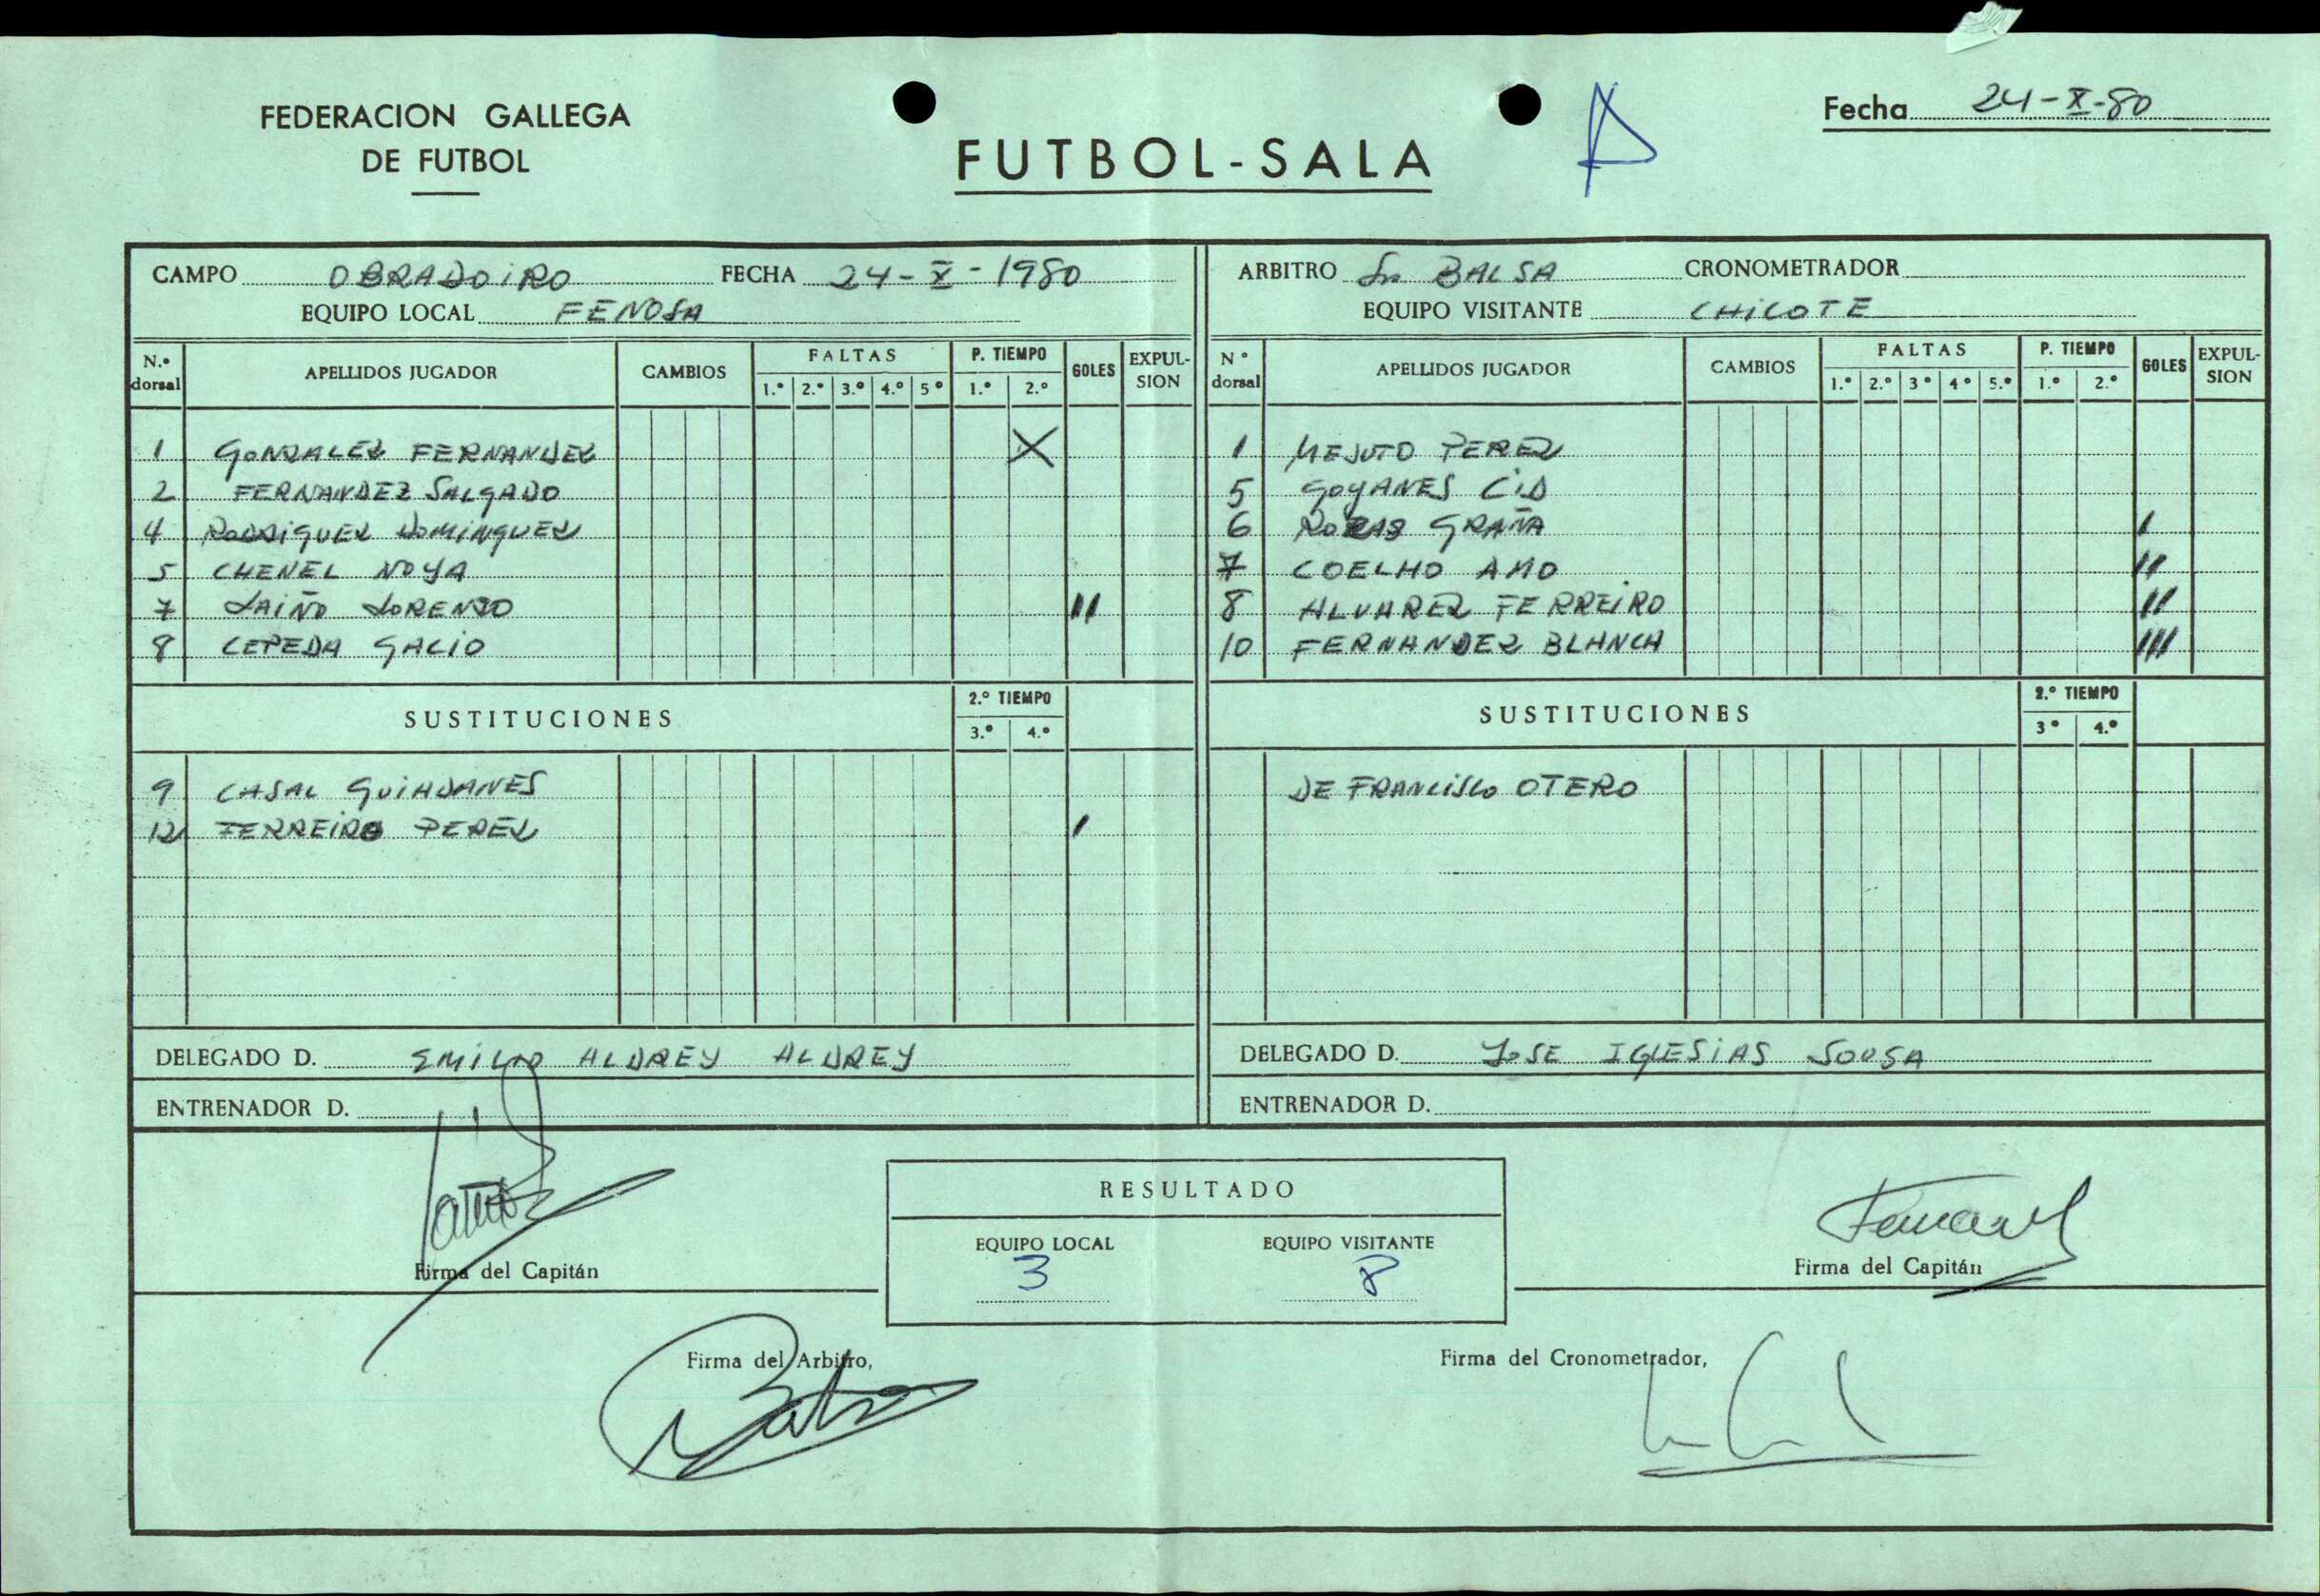 FEDERACION GALLEGA
DE FUTBOL
FUTBOL-SALA
Fecha 24-X-80
CAMPO OBRADOIRO FECHA 24-X-1980
EQUIPO LOCAL FENOSA
N.º dorsal APELLIDOS JUGADOR CAMBIOS FALTAS 1.º 2.º 3.º 4.º 5º P. TIEMPO 1.º 2.º GOLES EXPUL-SION
1 GONZALEZ FERNANDEZ X
2 FERNANDEZ SALGADO
4 RODRIGUEZ DOMINGUEZ
5 CHENEL NOYA
7 LAIÑO LORENZO II
8 CEPEDA GACIO
SUSTITUCIONES 2.º TIEMPO 3.º 4.º
9 CASAL GUIADANES
12 FERREIRO PEREZ I
DELEGADO D. EMILIO ALDREY ALDREY
ENTRENADOR D.
ARBITRO Sr. BALSA CRONOMETRADOR
EQUIPO VISITANTE CHICOTE
Nº dorsal APELLIDOS JUGADOR CAMBIOS FALTAS 1.º 2.º 3º 4º 5.º P. TIEMPO 1.º 2.º GOLES EXPUL-SION
1 MEJUTO PEREZ
5 GOYANES CID
6 ROZAS GRAÑA I
7 COELHO AMO II
8 ALVAREZ FERREIRO II
10 FERNANDEZ BLANCA III
SUSTITUCIONES 2.º TIEMPO 3º 4.º
DE FRANCISCO OTERO
DELEGADO D. JOSE IGLESIAS SOUSA
ENTRENADOR D.
RESULTADO
EQUIPO LOCAL EQUIPO VISITANTE
3 8
Firma del Capitán
Firma del Capitán
Firma del Arbitro,
Firma del Cronometrador,